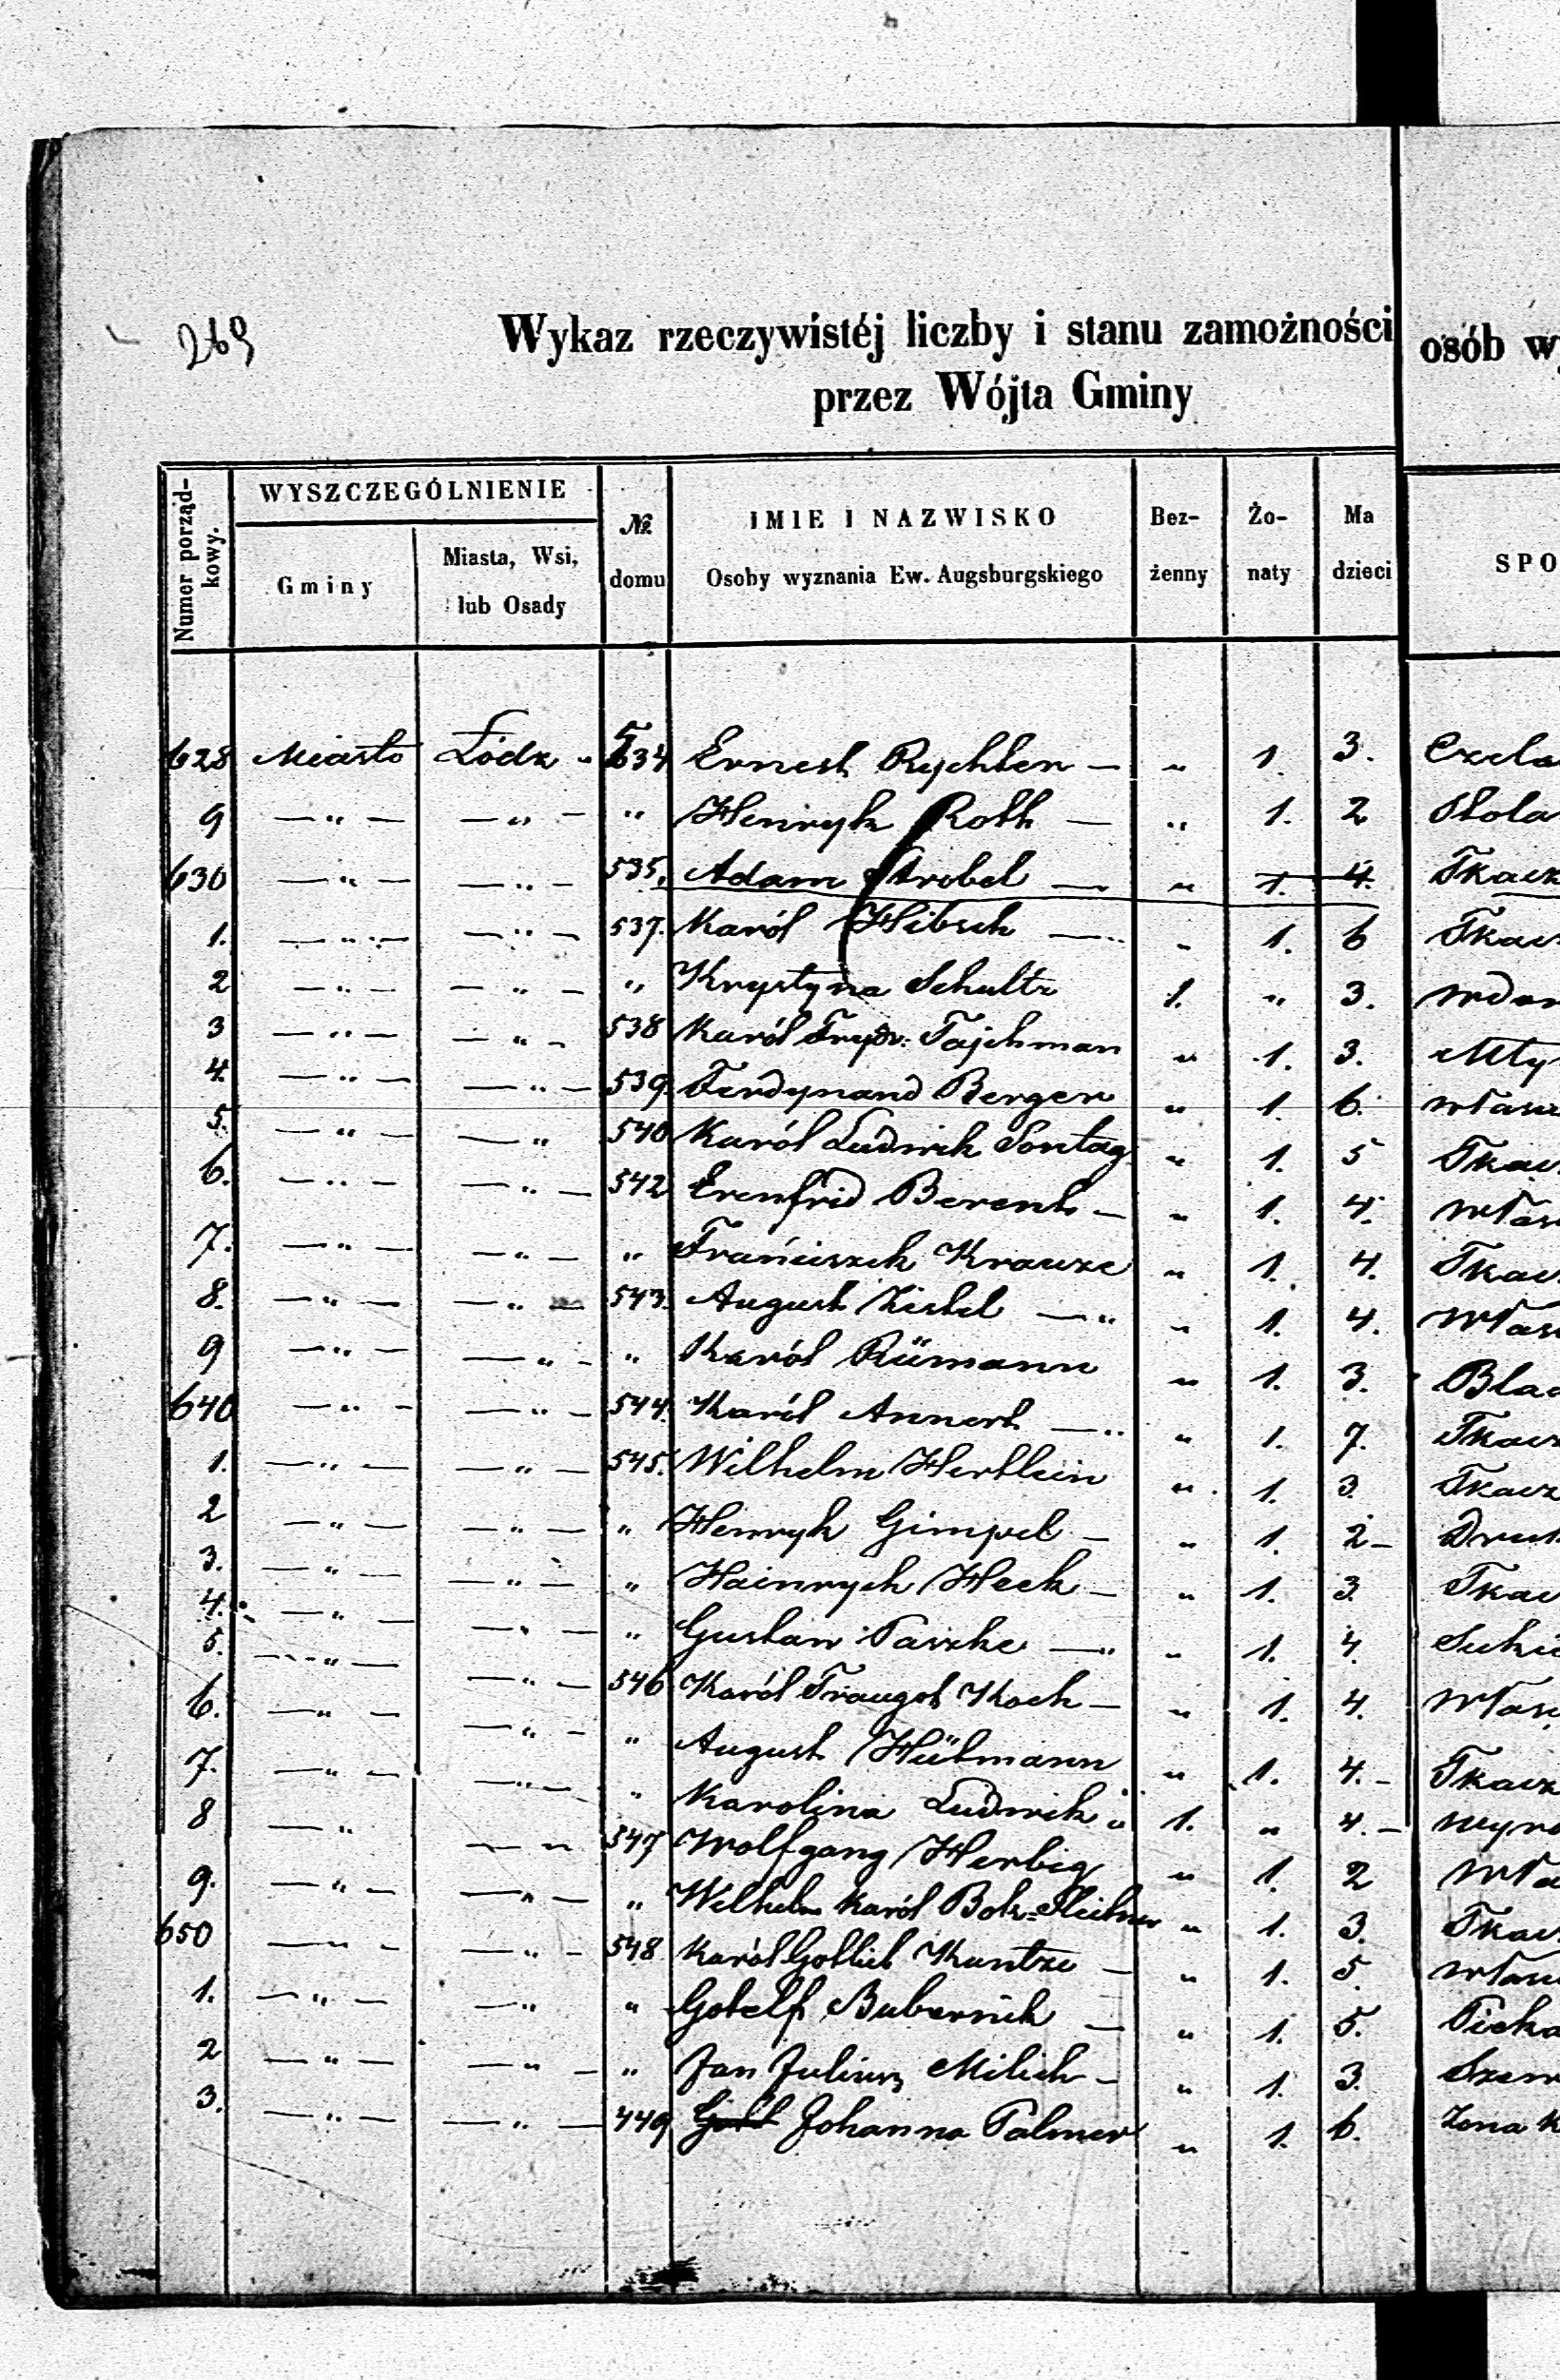 269
Wykaz rzeczywistéj liczby i stanu zamożności
osób wy
przez Wójta Gminy
Numer porząd-
kowy.
WYSZCZEGÓLNIENIE
Gminy
Miasta, Wsi,
lub Osady
№
domu
IMIE I NAZWISKO
Osoby wyznania Ew. Augsburgskiego
Bez-
żenny
Żo-
naty
Ma
dzieci
SPO
628 Miasto Łódz " 534 Ernest Rychter — " 1. 3. Czela
9 —"— —"— " Henryk Roth — " 1. 2 Stola
630 —"— —"— 535. Adam Strobel — " 1. 4. Tkacz
1. —"— —"— 537. Karól Hibsch — " 1. 6 Tkacz
2 —"— —"— " Krystyna Schultz 1. " 3. wdow
3 —"— —"— 538 Karól Fryd: Tajchman " 1. 3. Mły
4. —"— —"— 539. Ferdynand Berger " 1. 6. własc
5. —"— —" 540 Karól Ludwik Sontag " 1. 5 Tkac
6. —"— —"— 542 Erenfrid Berent — " 1. 4. włas
7. —"— —"— " Franciszek Krauze " 1. 4. Tkac
8. —"— —"— 543. August Zistel —" " 1. 4. Włas
9 —"— —"— " Karól Rümann " 1. 3. Blac
640 —"— —"— 544. Karól Annert —" " 1. 7. Tkacz
1. —"— —"— 545. Wilhelm Hertlein " 1. 3. Tkacz
2 —"— —"— " Henryk Gimpel — " 1. 2 — Druk
3. —"— —"— " Hainrych Heck — " 1. 3. Tkac
4. —"— —"— " Gustaw Paszke —" " 1. 4. Suki
5. —"— —"— 546 Karól Traugot Koch — " 1. 4. Włas
6. —"— —"— " August Hülmann " 1. 4. — Tkacz
7. —"— —"— " Karolina Ludwik " 1. " 4. — wyro
8 —" —" 547 Wolfgang Herbig " 1. 2 Wła
9. —"— —"— " Wilhelm Karól " 1. 3. Tkac
650 —"— —"— 548 Karól Gotlieb Kuntze — " 1. 5. włas
1. —"— —" " Gotelf Bubernik — " 1. 5. Pieka
2 —"— —"— " Jan Juliusz Milich — " 1. 3. Szew
3. —"— —"— 449 Johanna Palmer " 1. 6. Zona K